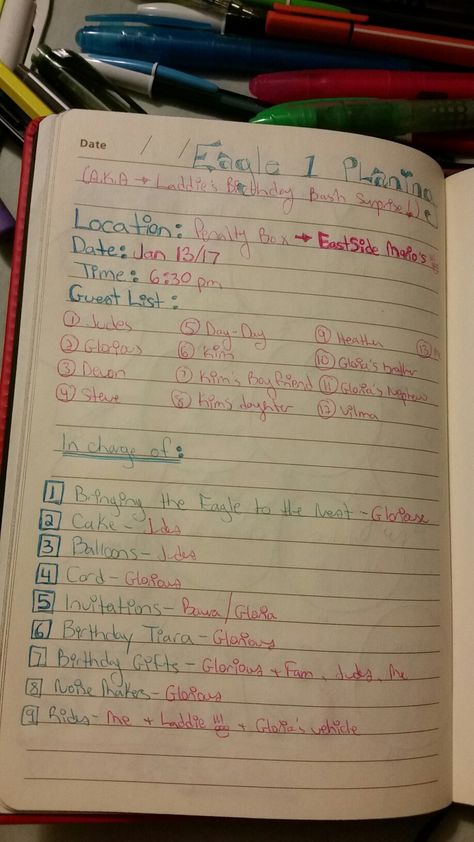 Date / / Eagle 1 Planing
(A.K.A → Laddie's Birthday Bash Surprise!)
Location: Penalty Box → EastSide Mario's
Date: Jan 13/17
Time: 6:30 pm
Guest List:
① Judes ⑤ Day-Day ⑨ Heather ⑬
② Glorious ⑥ Kim ⑩ Gloria's brother
③ Devon ⑦ Kim's Boyfriend ⑪ Gloria's Nephew
④ Steve ⑧ Kim's daughter ⑫ Vilma
In charge of:
1 Bringing the Eagle to the Nest - Gloriouse
2 Cake - Judes
3 Balloons - Judes
4 Card - Glorious
5 Invitations - Bawa/Gloria
6 Birthday Tiara - Glorious
7 Birthday Gifts - Glorious + Fam, Judes, Me
8 Noise Makes - Glorious
9 Rides - Me + Laddie + Gloria's vehicle